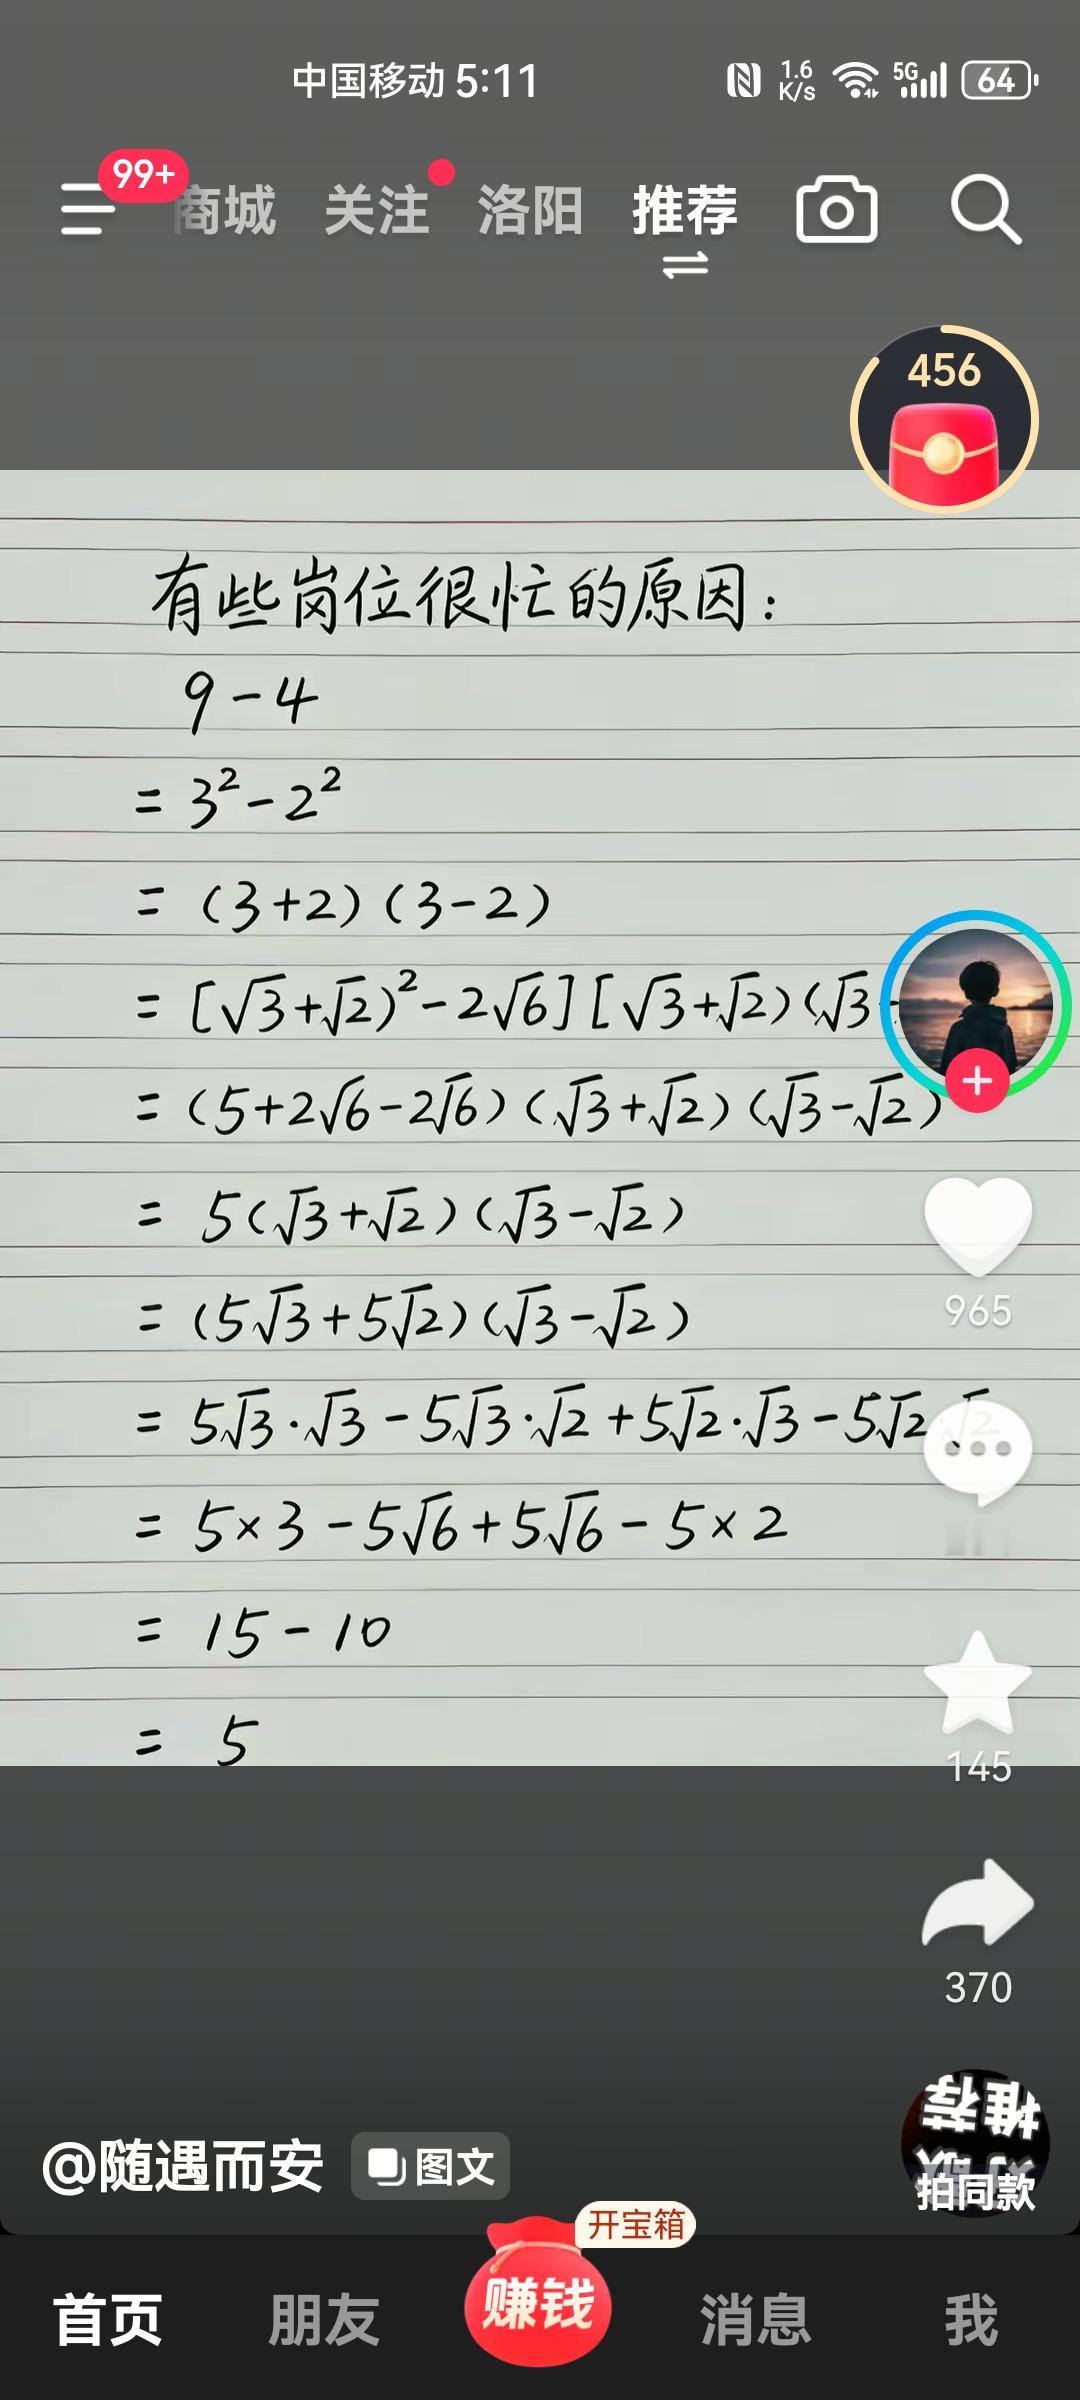 中国移动 5:11
1.6 K/s
5G
64
99+
商城 关注 洛阳 推荐
456
有些岗位很忙的原因：
9-4
= 3²-2²
= (3+2)(3-2)
= [√3+√2)²-2√6][√3+√2)(√3
= (5+2√6-2√6)(√3+√2)(√3-√2)
= 5(√3+√2)(√3-√2)
= (5√3+5√2)(√3-√2)
= 5√3·√3-5√3·√2+5√2·√3-5√2·√2
= 5×3-5√6+5√6-5×2
= 15-10
= 5
965
145
370
推荐
拍同款
@随遇而安 图文
开宝箱
首页 朋友 赚钱 消息 我